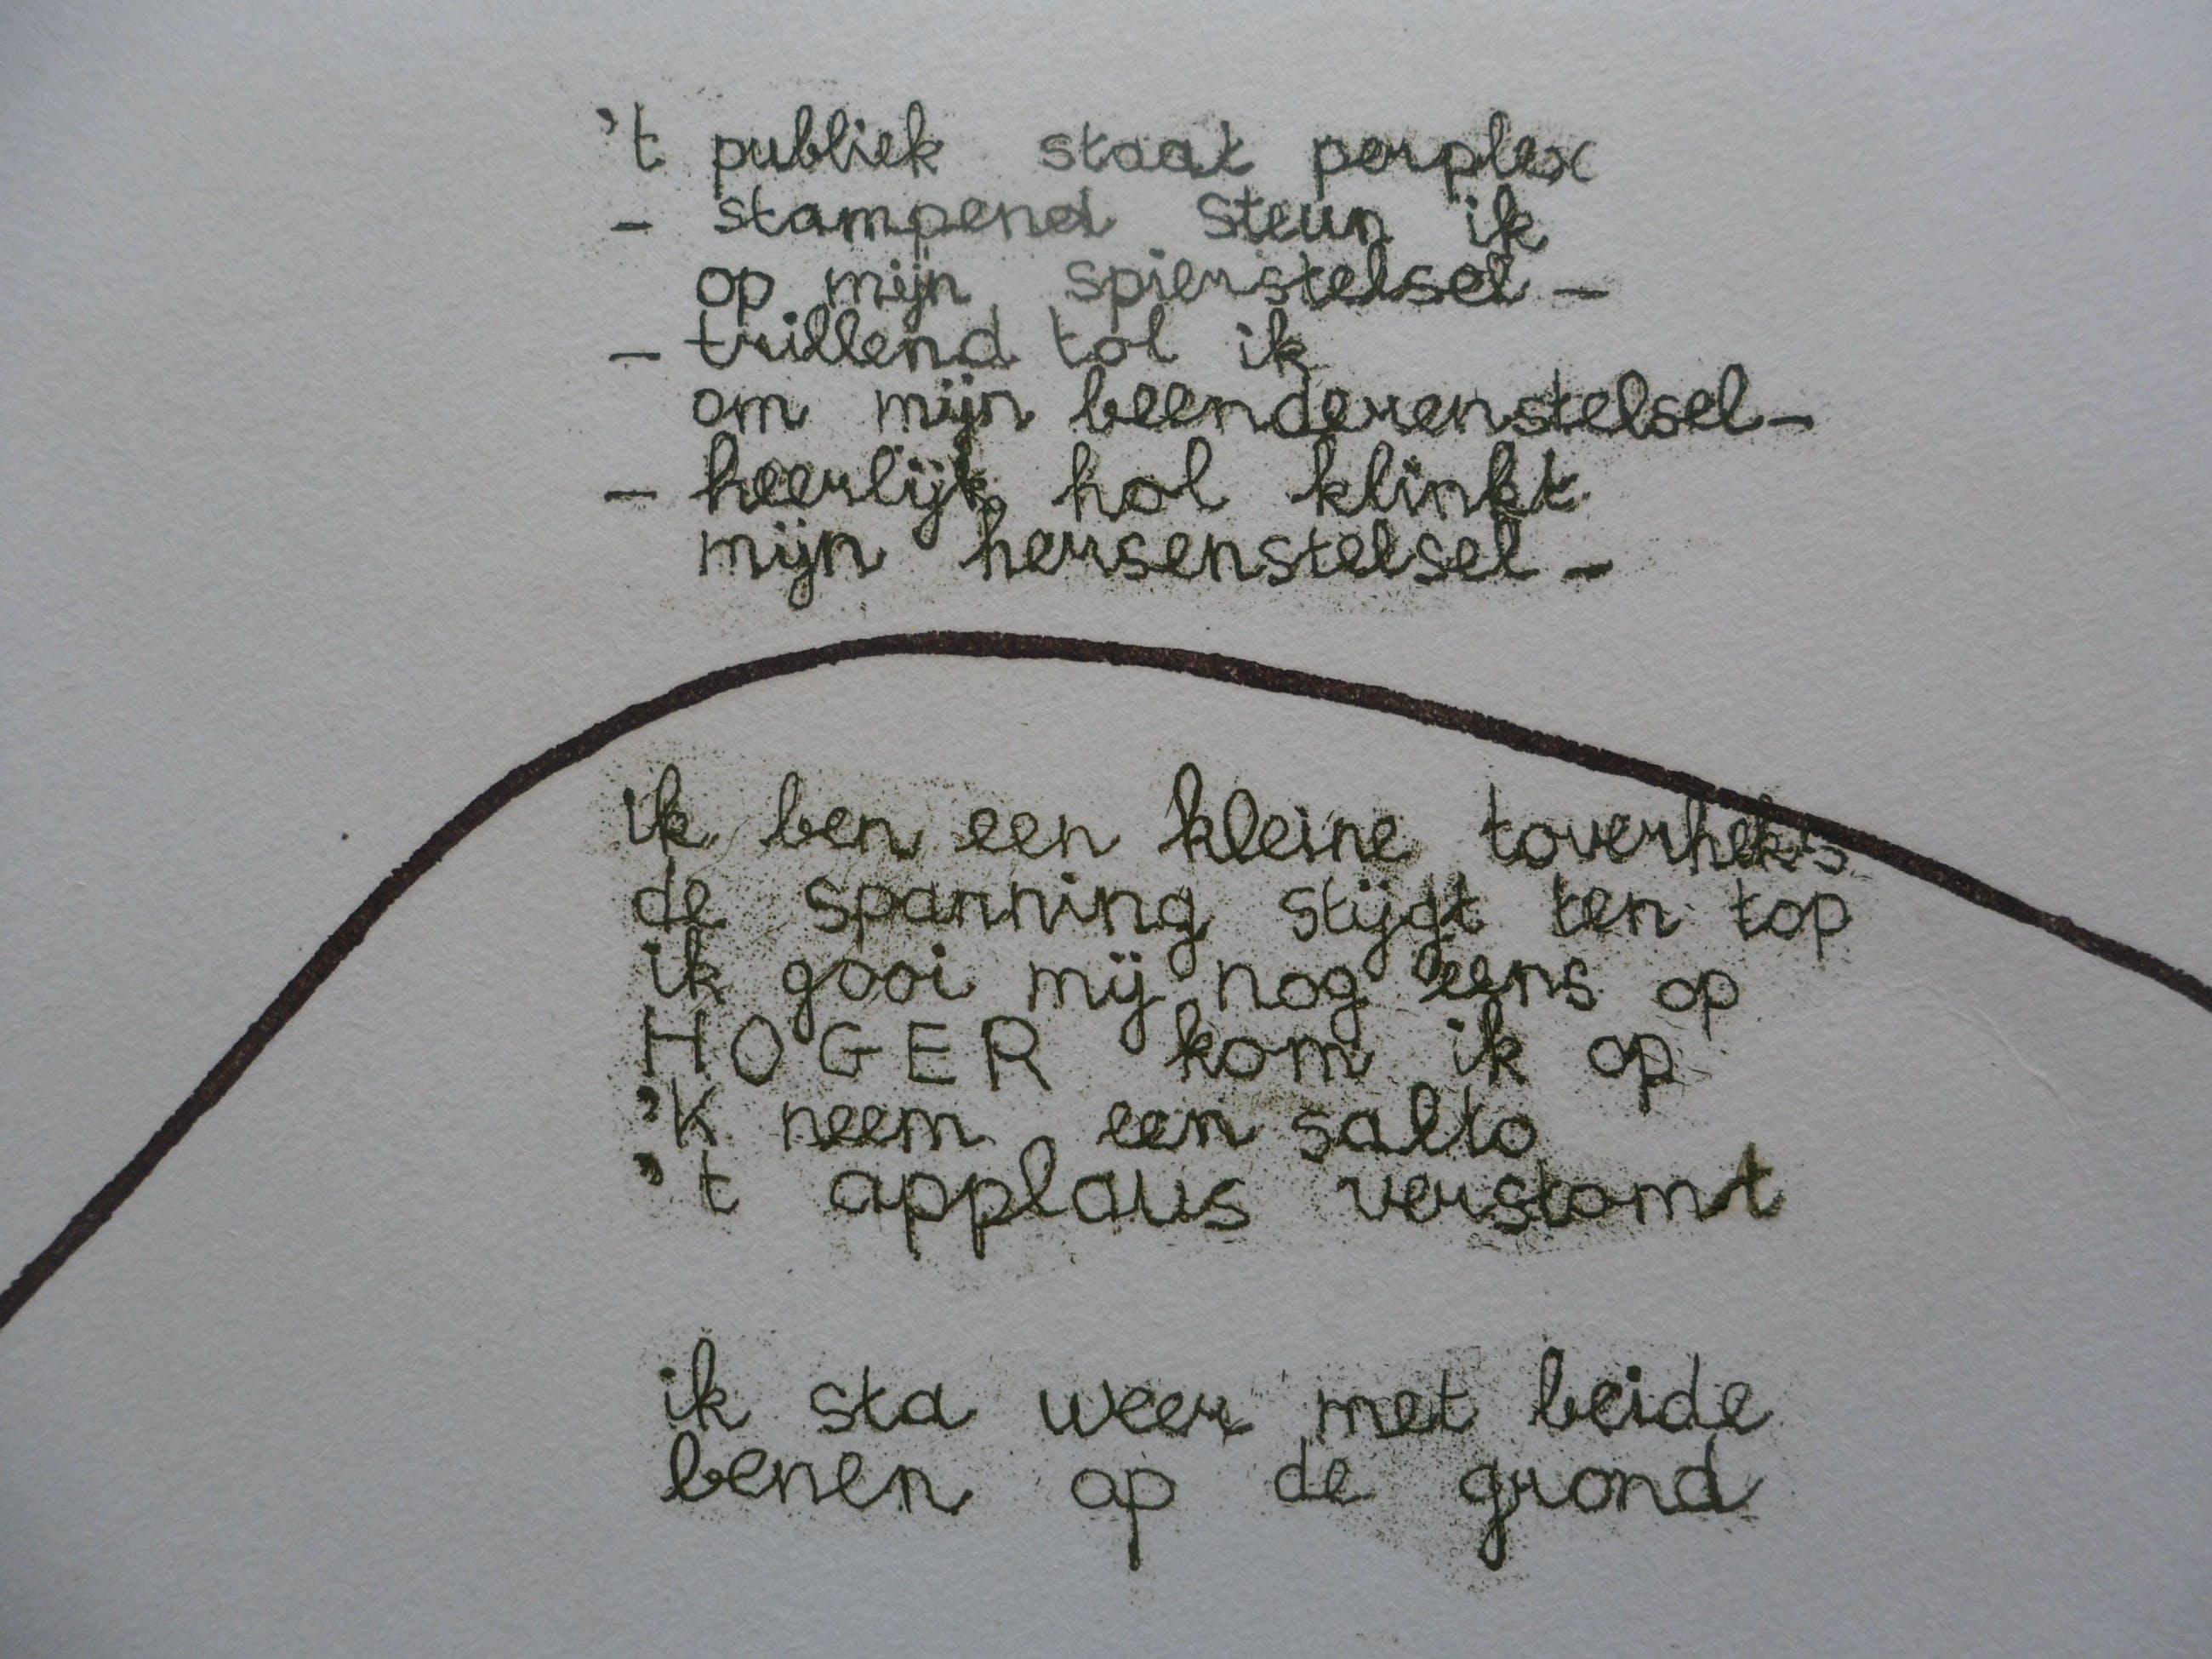 't publiek staat perplex
- stampend steun ik
op mijn spierstelsel -
- trillend tol ik
om mijn beenderenstelsel -
- heerlijk hol klinkt
mijn hersenstelsel -
ik ben een kleine toverheks
de spanning stijgt ten top
ik gooi mij nog eens op
HOGER kom ik op
'K neem een salto
't applaus verstomt
ik sta weer met beide
benen op de grond